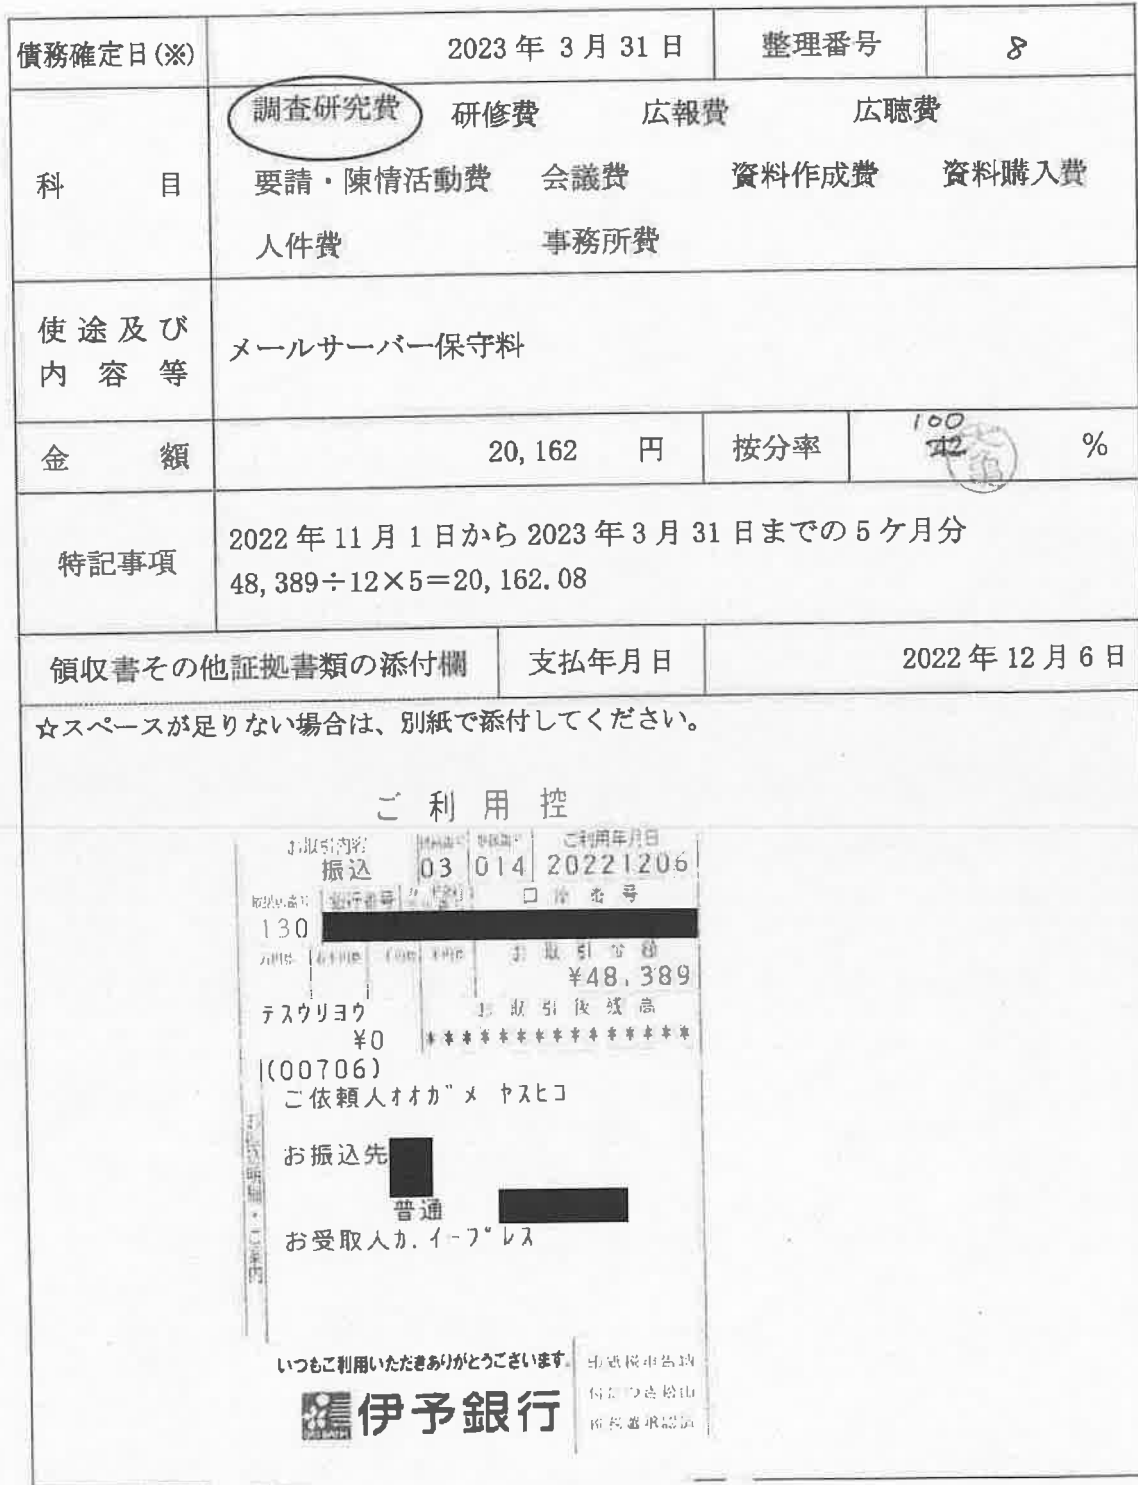 債務確定日(※) 2023年 3月 31日 整理番号 8
科 目 調査研究費 研修費 広報費 広聴費
要請・陳情活動費 会議費 資料作成費 資料購入費
人件費 事務所費
使途及び内容等 メールサーバー保守料
金 額 20,162 円 按分率 100 42 %
特記事項 2022年11月1日から2023年3月31日までの5ケ月分
48,389÷12×5=20,162.08
領収書その他証拠書類の添付欄 支払年月日 2022年12月6日
☆スペースが足りない場合は、別紙で添付してください。
ご利用控
お取引内容 ご利用年月日
振込 03 014 20221206
銀行番号 口座番号
130
お取引金額
¥48,389
テスウリヨウ お取引後残高
¥0 ***************
(00706)
ご依頼人オオガメ ヤスヒコ
お振込先
普通
お受取人カ.イープレス
お振込明細・ご案内
いつもご利用いただきありがとうございます。
伊予銀行